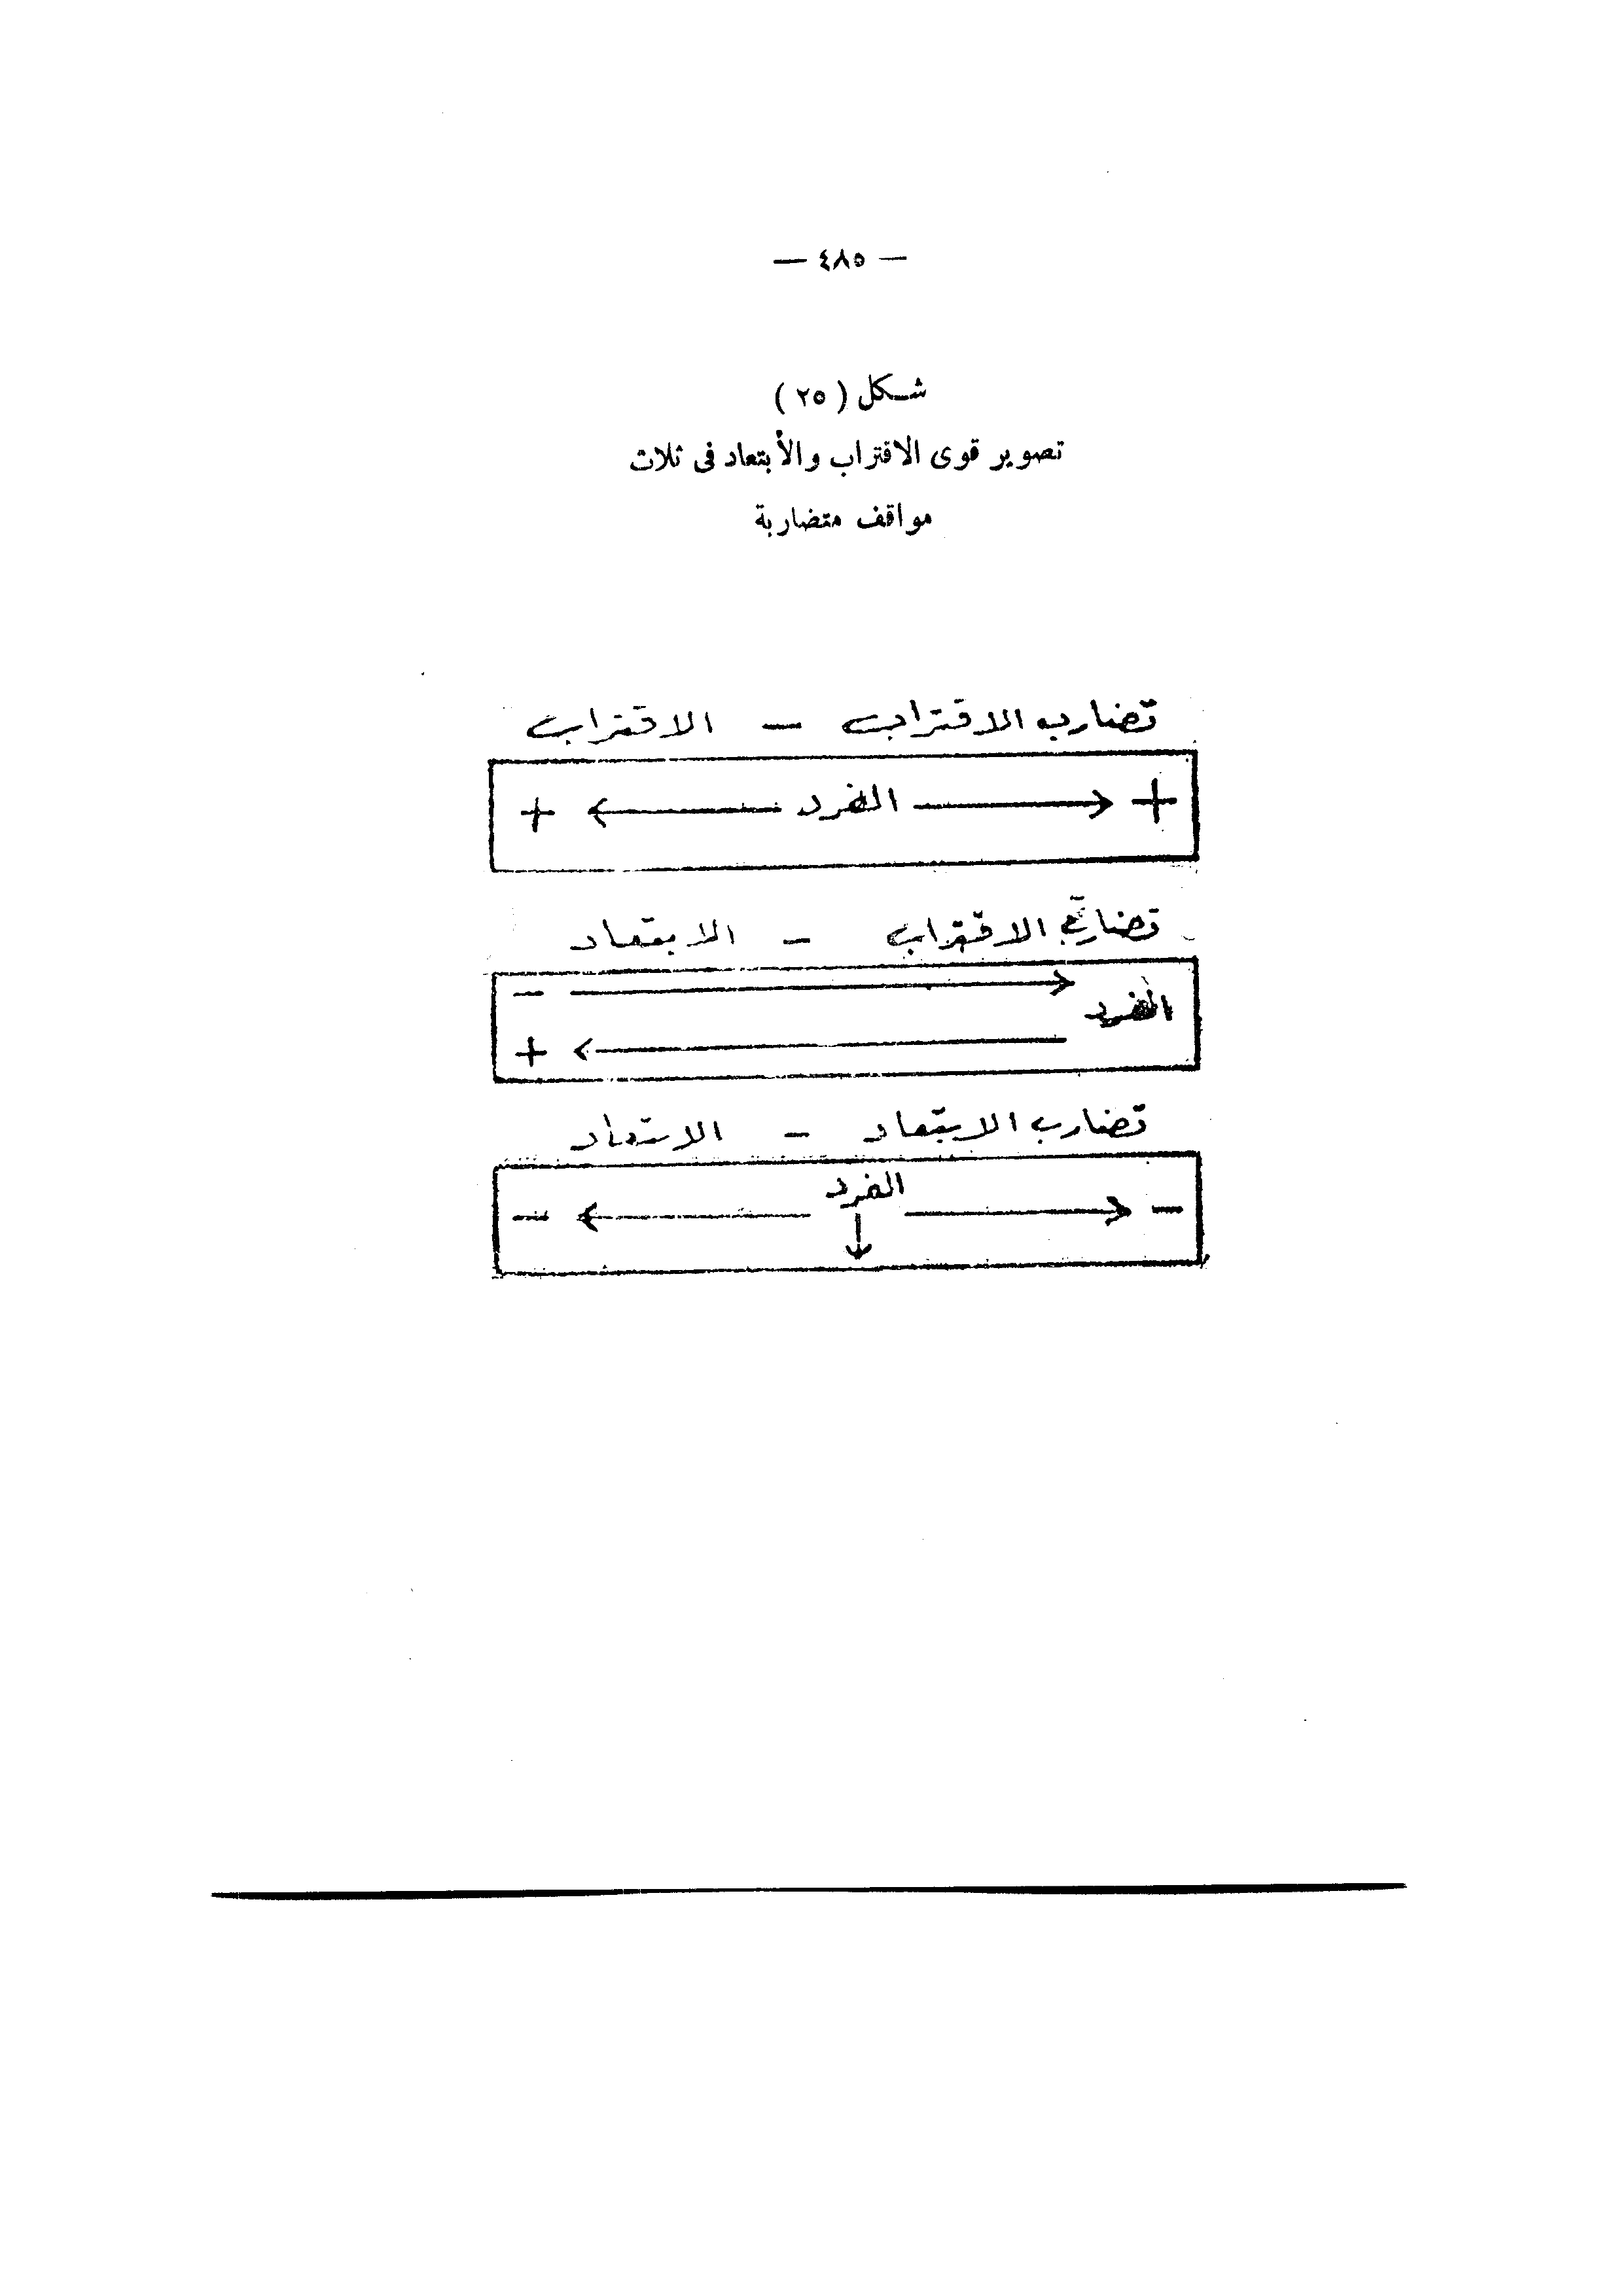 — ٤٨٥ —
شكل ( ٢٥ )
تصوير قوى الاقتراب والأبتعاد فى ثلاث
مواقف متضاربة
تضارب الاقتراب – الاقتراب
+ ← الفرد → +
تضارب الاقتراب – الابتعاد
−
الفرد
+
تضارب الابتعاد – الابتعاد
الفرد
− ← → −
↓